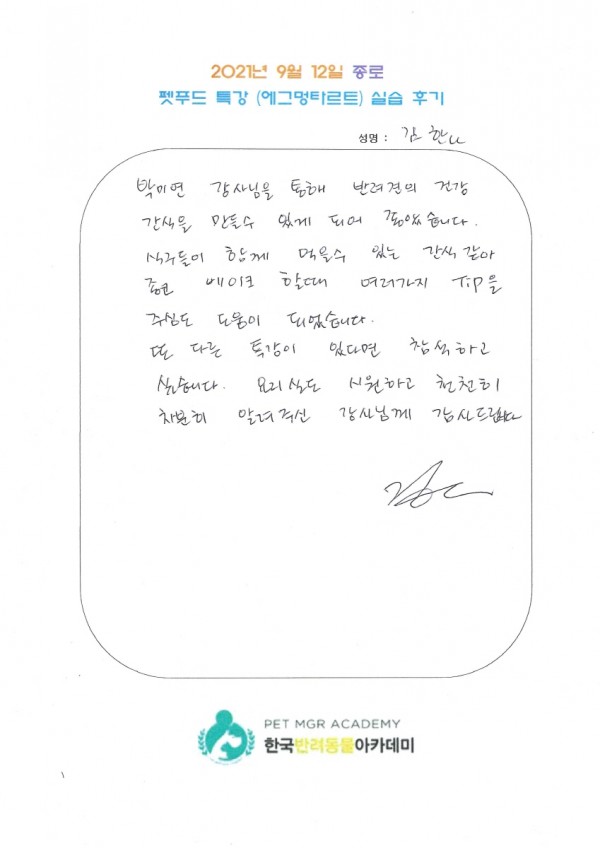 2021년 9월 12일 종로
펫푸드 특강 (에그멍타르트) 실습 후기
성명 : 김 한나
박미연 강사님을 통해 반려견의 건강
간식을 만들수 있게 되어 좋았습니다.
식구들이 함께 먹을수 있는 간식 같아
베이크 할때 여러가지 Tip을
주심도 도움이 되었습니다.
또 다른 특강이 있다면 참석하고
싶습니다. 요리실도 시원하고 천천히
차분히 알려주신 강사님께 감사드립니다
PET MGR ACADEMY
한국반려동물아카데미